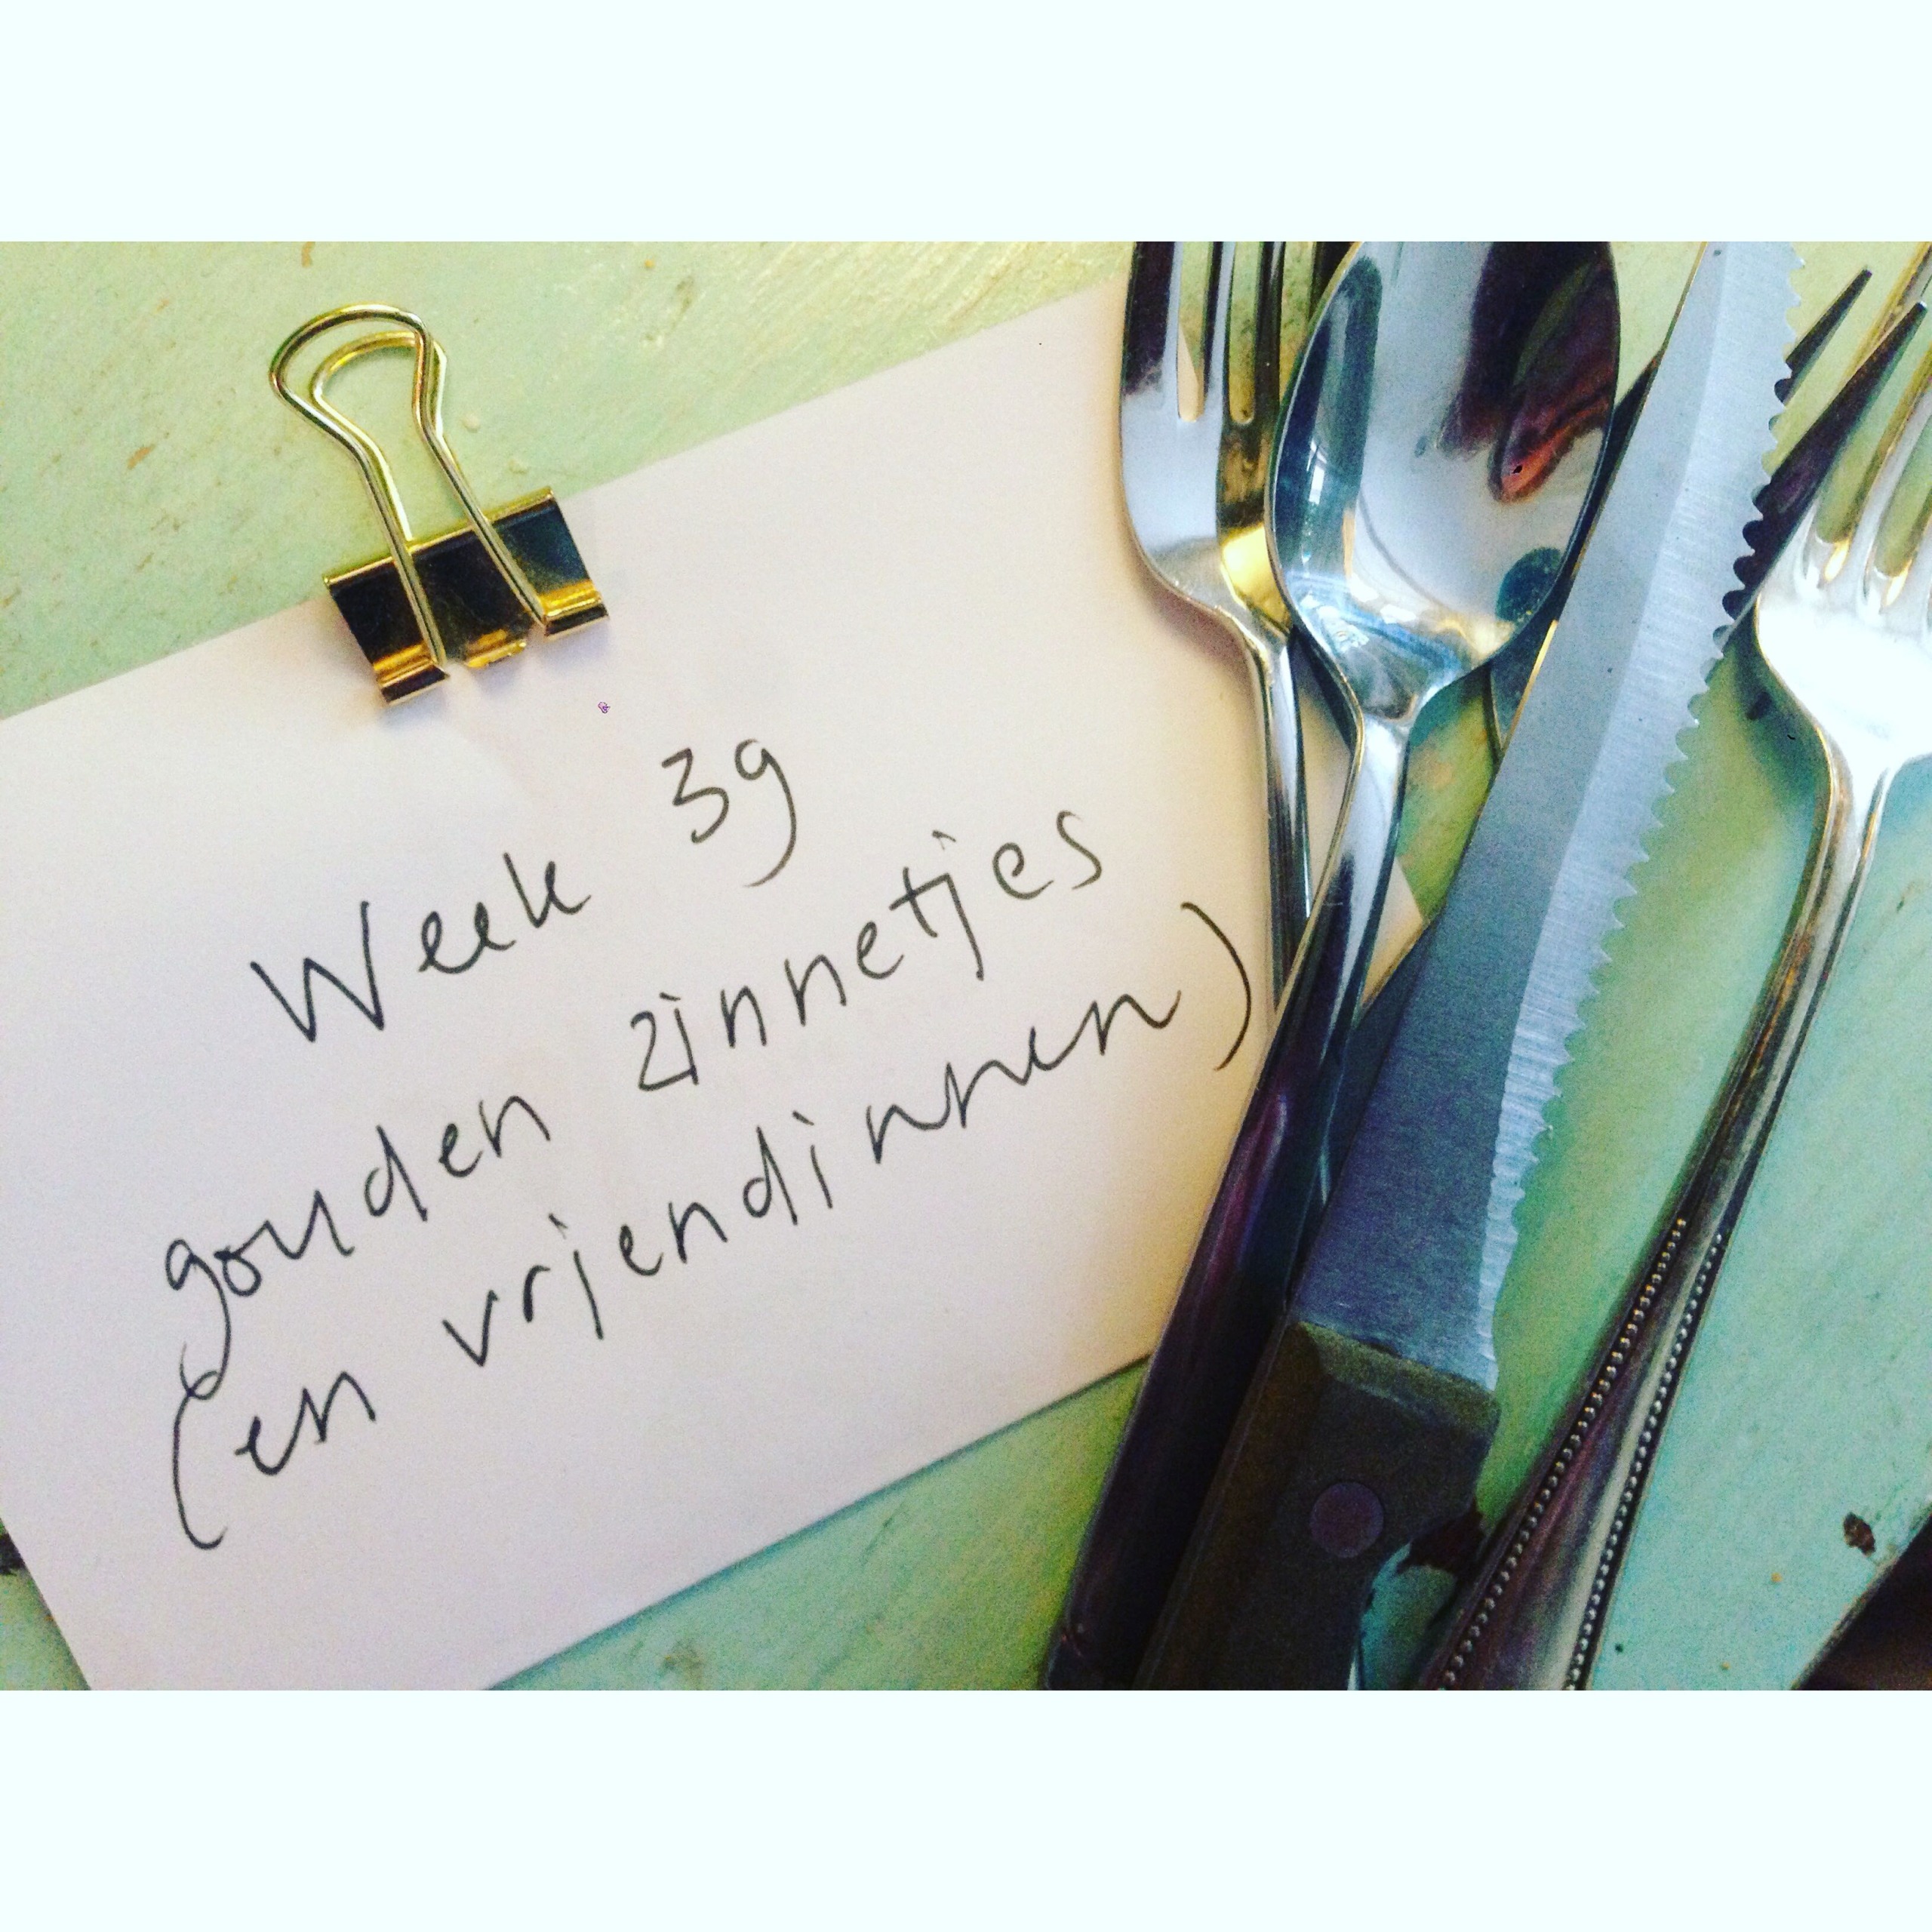 Week 39
gouden zinnetjes
(en vriendinnen)